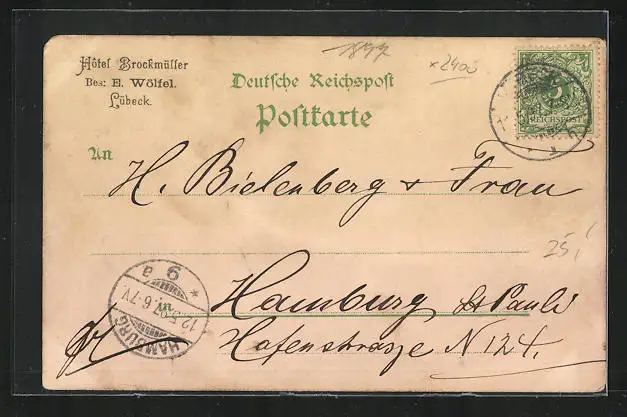 Hôtel Brockmüller
Bes: E. Wölfel.
Lübeck.
1897
× 2400
Deutsche Reichspost
Postkarte
5
REICHSPOST
An
H. Bielenberg + Frau
25,
in
Hamburg St Pauli
Hafenstrasze N 124.
HAMBURG
12.5.97. 6-7V.
* 9 a